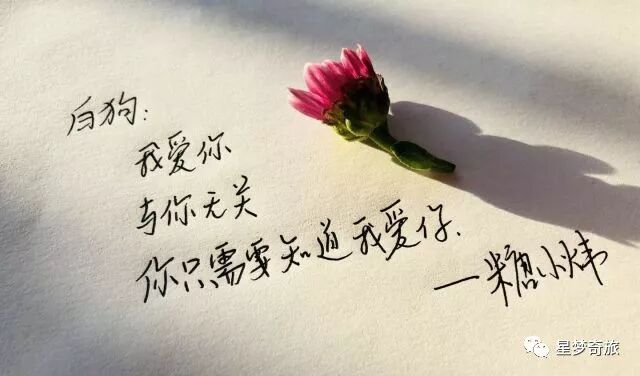 白狗:
我爱你
与你无关
你只需要知道我爱你.
—糖小炜
星梦奇旅